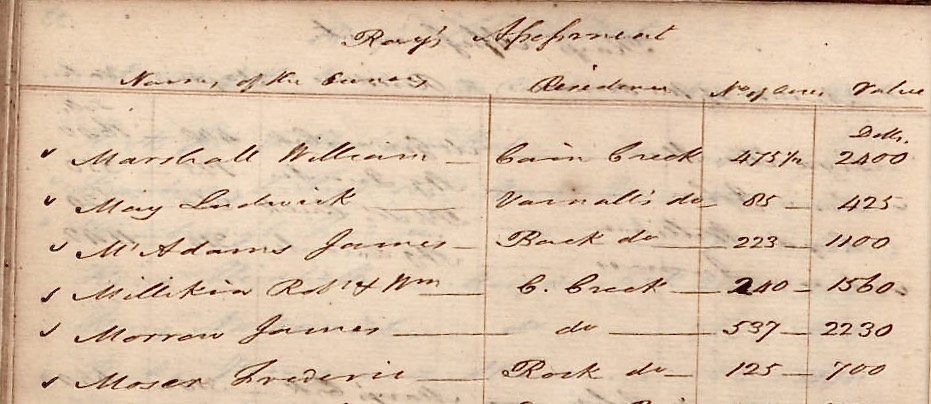 Ray's Assessment
Names of the Owners Residence No of Acres Value
Dolls.
Marshall William — Cain Creek 475½ 2400
May Ludwick — Varnall's do 85 — 425
Mc Adams James — Back do — 223 — 1100
Millikin Robt & Wm — C. Creek — 240 — 1560
Morrow James — do — 537 — 2230
Moser Frederic — Rock do — 125 — 700